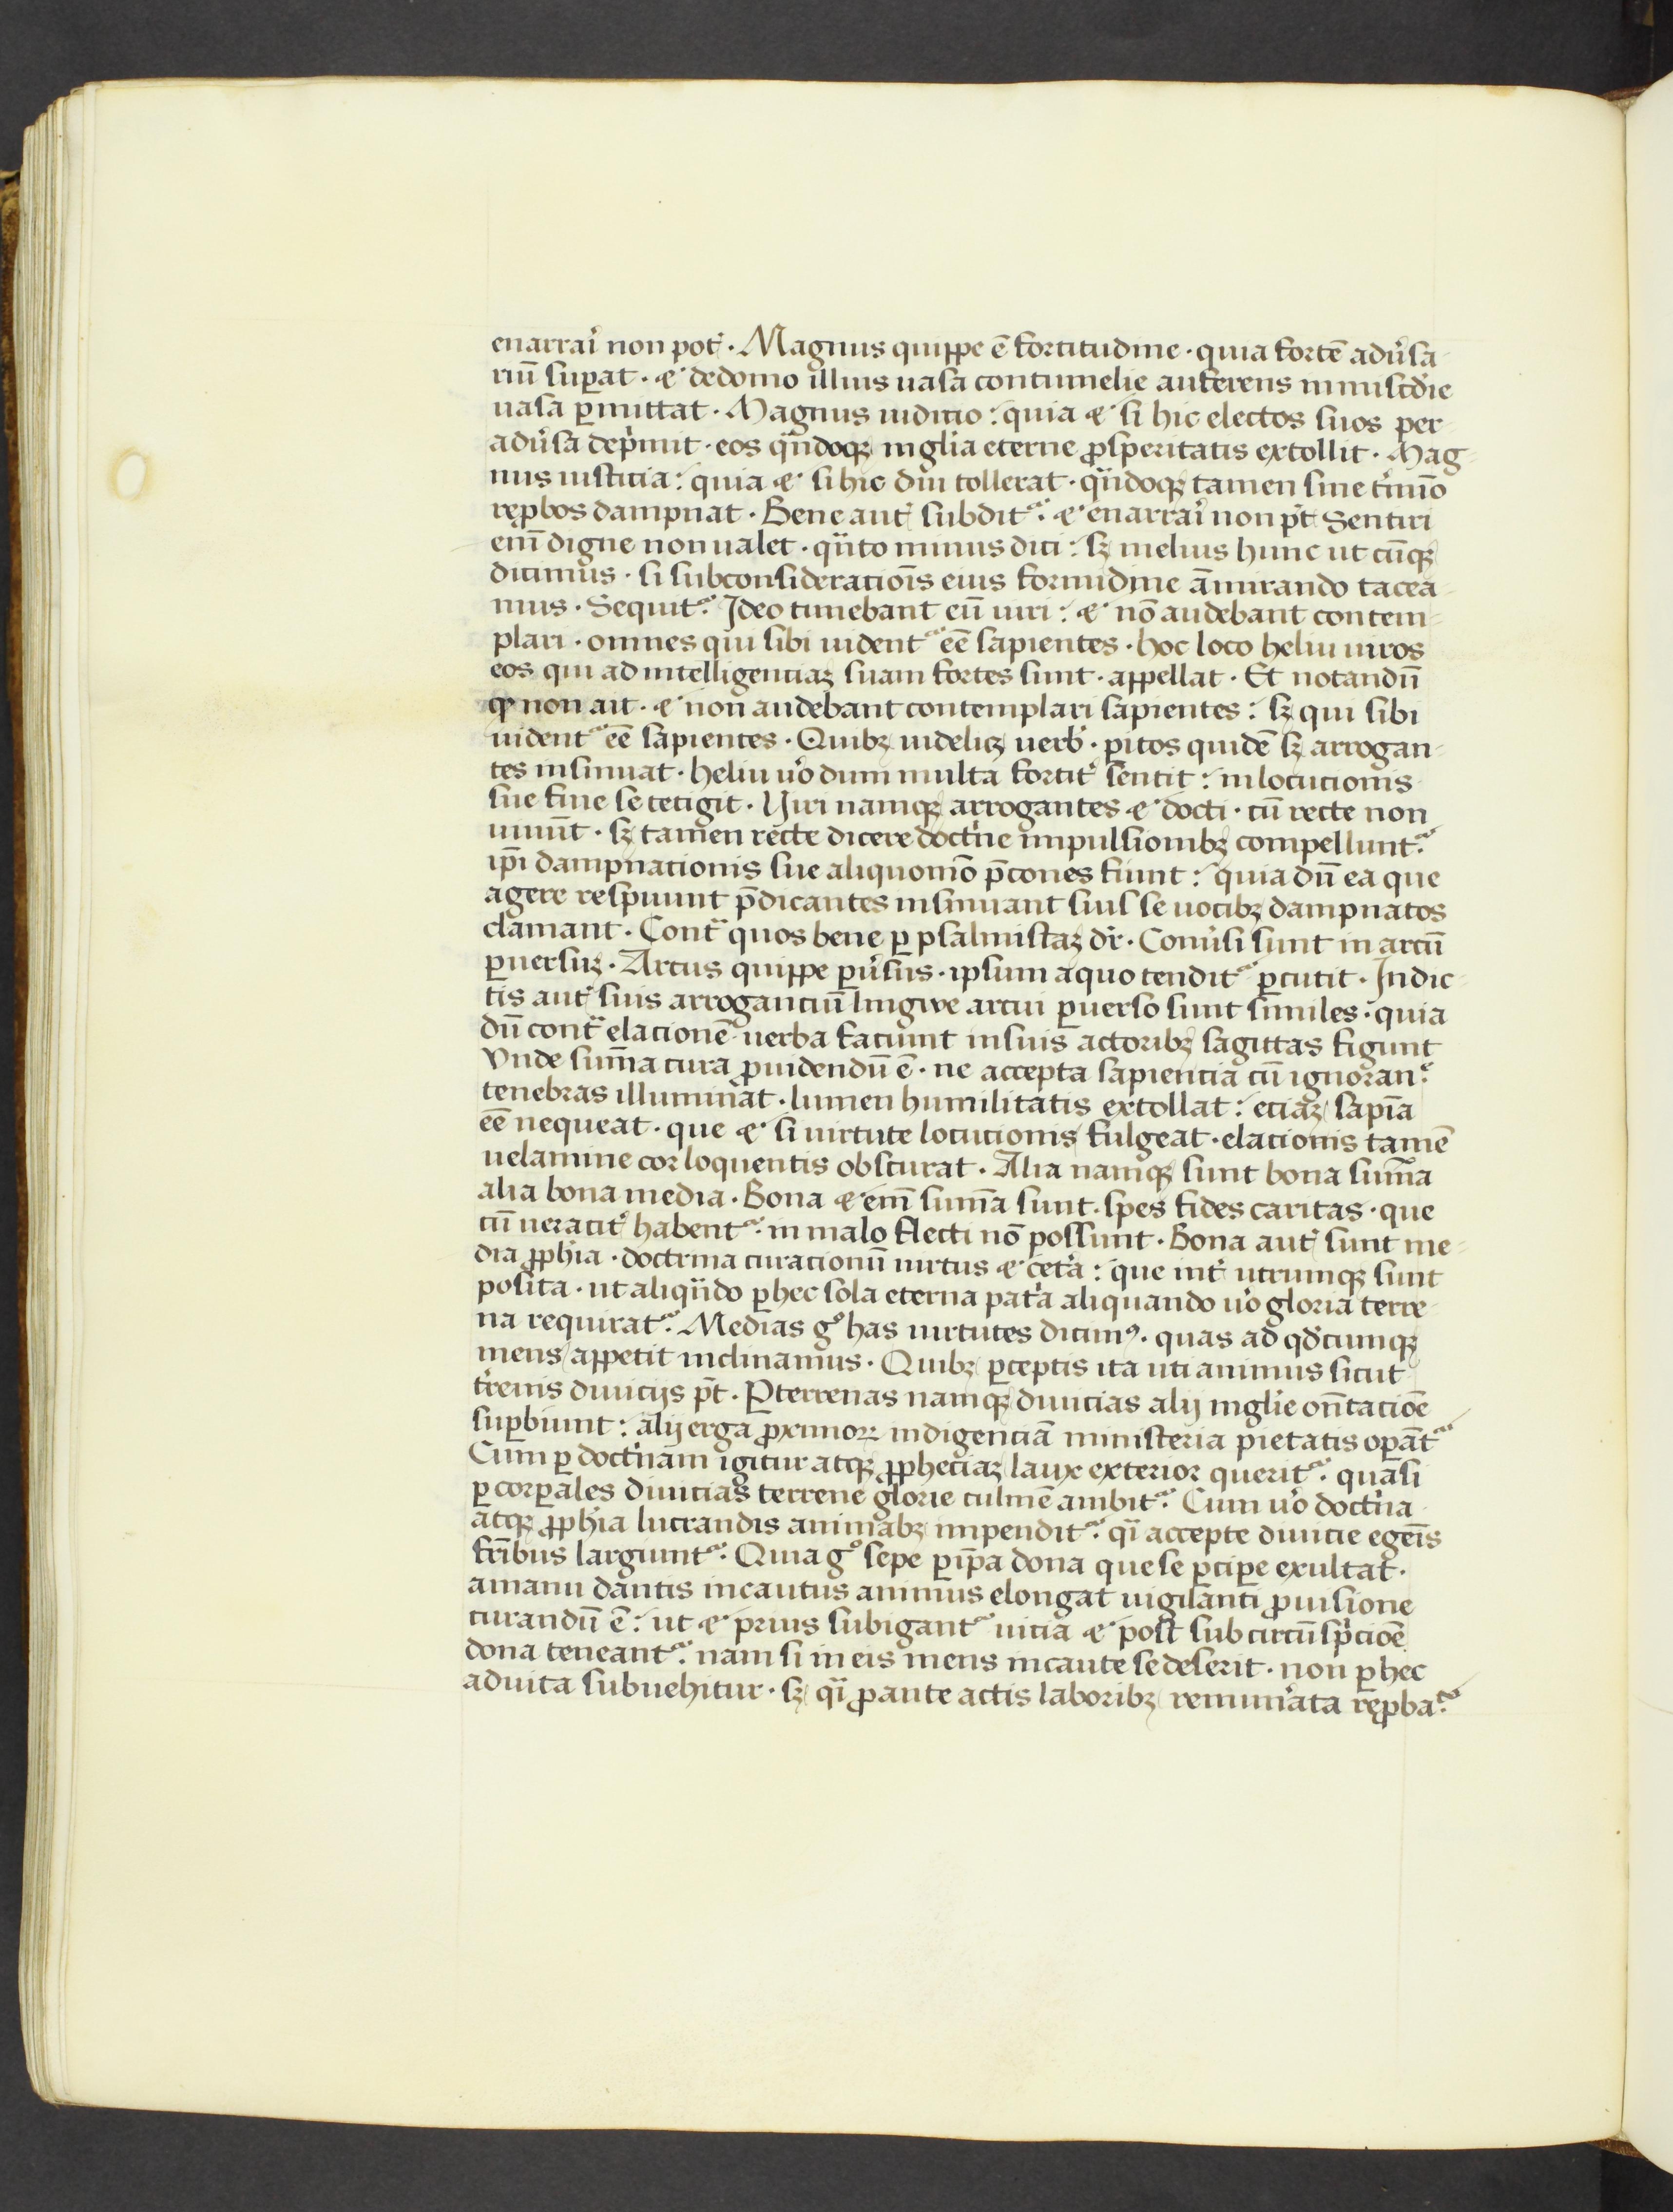 enarrar̉i non pot̉ · Magnus quippe ē fortitudine · quia fortē adűsa-
riū suꝑat · ⁊ de domo illius uasa contumelie auferens in miscd̉ie
uasa ꝑmittat · Magnus iudicio : quia ⁊ si hic electos suos per
adűsa dep̉mit · eos qn̄doqꝫ in gl̉ia eterne ꝓsperitatis extollit · Mag-
nus iusticia : quia ⁊ si hic diu tollerat · qn̄doqꝫ tamen sine t̉mīo
reꝓbos dampnat · Bene aut̉ subditᷣ · ⁊ enarrar̉i non pt̄ Sentiri
enī digne non ualet · qn̄to minus dici : sꝫ melius hunc ut cūqꝫ
dicimus · si sub consideracioīs eius formidine āmirando tacea-
mus · Sequitᷣ · Ideo timebant eū uiri : ⁊ nō audebant contem-
plari · omnes qui sibi uidentᷣ eē sapientes · hoc loco heliu uiros
eos qui ad intelligenciaꝫ suam fortes sunt · appellat · Et notandū
ꝙ non ait · ⁊ non audebant contemplari sapientes : sꝫ qui sibi
uidentᷣ eē sapientes · Quibꝫ uidelicꝫ uerb̉ · pitos quidē sꝫ arrogan-
tes insinuat · heliu űo dum multa fortit̉ sentit : in locucionis
sue fine se tetigit · Uiri namqꝫ arrogantes ⁊ docti · cū recte non
uiuūt · sꝫ tamen recte dicere doct̉ne impulsionibꝫ compelluntᷣ ·
ip̄i dampnacionis sue aliquomō p̄cones fiunt : quia dū ea que
agere respuunt p̄dicantes insinuant suis se uocibꝫ dampnatos
clamant · Contᷓ quos bene ꝑ psalmistaꝫ dr̉ · Conűsi sunt in arcū
ꝑuersuꝫ · Arcus quippe ꝑűsus · ipsum a quo tenditᷣ ꝑcutit · In dic-
tis aut̉ suis arroganciū lingwe arcui ꝑuerso sunt similes · quia
dū contᷓ elacionē uerba faciunt in suis actoribꝫ sagittas figunt
Vnde sum̄a cura ꝓuidendū ē · ne accepta sapiencia cū ignoranᷓ ·
tenebras illuminat · lumen humilitatis extollat : eciaꝫ sapīa
eē nequeat · que ⁊ si uirtute locucionis fulgeat · elacionis tamē
uelamine cor loquentis obscurat · Alia namqꝫ sunt bona sum̄a
alia bona media · Bona ⁊enī sum̄a sunt · spes fides caritas · que
cū ueracit̉ habentᷣ · in malo flecti nō possunt · Bona aut̉ sunt me-
dia ꝓph̉ia · doctrina curacionū uirtus ⁊ cet̉a : que int̉ utrumqꝫ sunt
posita · ut aliqn̄do ꝑ hec sola eterna pat̉a aliquando űo gloria terre-
na requiratᷣ · Medias gͦ has uirtutes dicimꝰ · quas ad qd̉cumqꝫ
mens appetit inclinamus · Quibꝫ ꝑceptis ita uti animus sicut
t̉renis diuicijs pt̄ · Per terrenas namqꝫ diuicias alij in gl̉ie on̄tacioē
suꝑbiunt : alij erga ꝓximoꝝ indigenciā ministeria pietatis oꝑātᷣ
Cum ꝑ doct̉nam igitur atqꝫ ꝓpheciaꝫ laux exterior queritᷣ · quasi
ꝑ corꝑales diuicias terrene glorie culmē ambitᷣ · Cum űo doct̉na
atqꝫ ꝓph̉ia lucrandis animabꝫ impenditᷣ · qī accepte diuicie egeīs
fr̄ibus largiuntᷣ · Quia gͦ sepe ꝑ ip̄a dona que se ꝑciꝑe exultat ·
a manu dantis incautus animus elongat uigilanti ꝓuisione
curandū ē : ut ⁊ prius subigantᷣ uicia ⁊ post sub circūsp̄cioē
dona teneantᷣ · nam si in eis mens incaute se deserit · non ꝑ hec
adiuta subuehitur · sꝫ qī ꝓ ante actis laboribꝫ remun̉ata reꝓbaᷣ ·